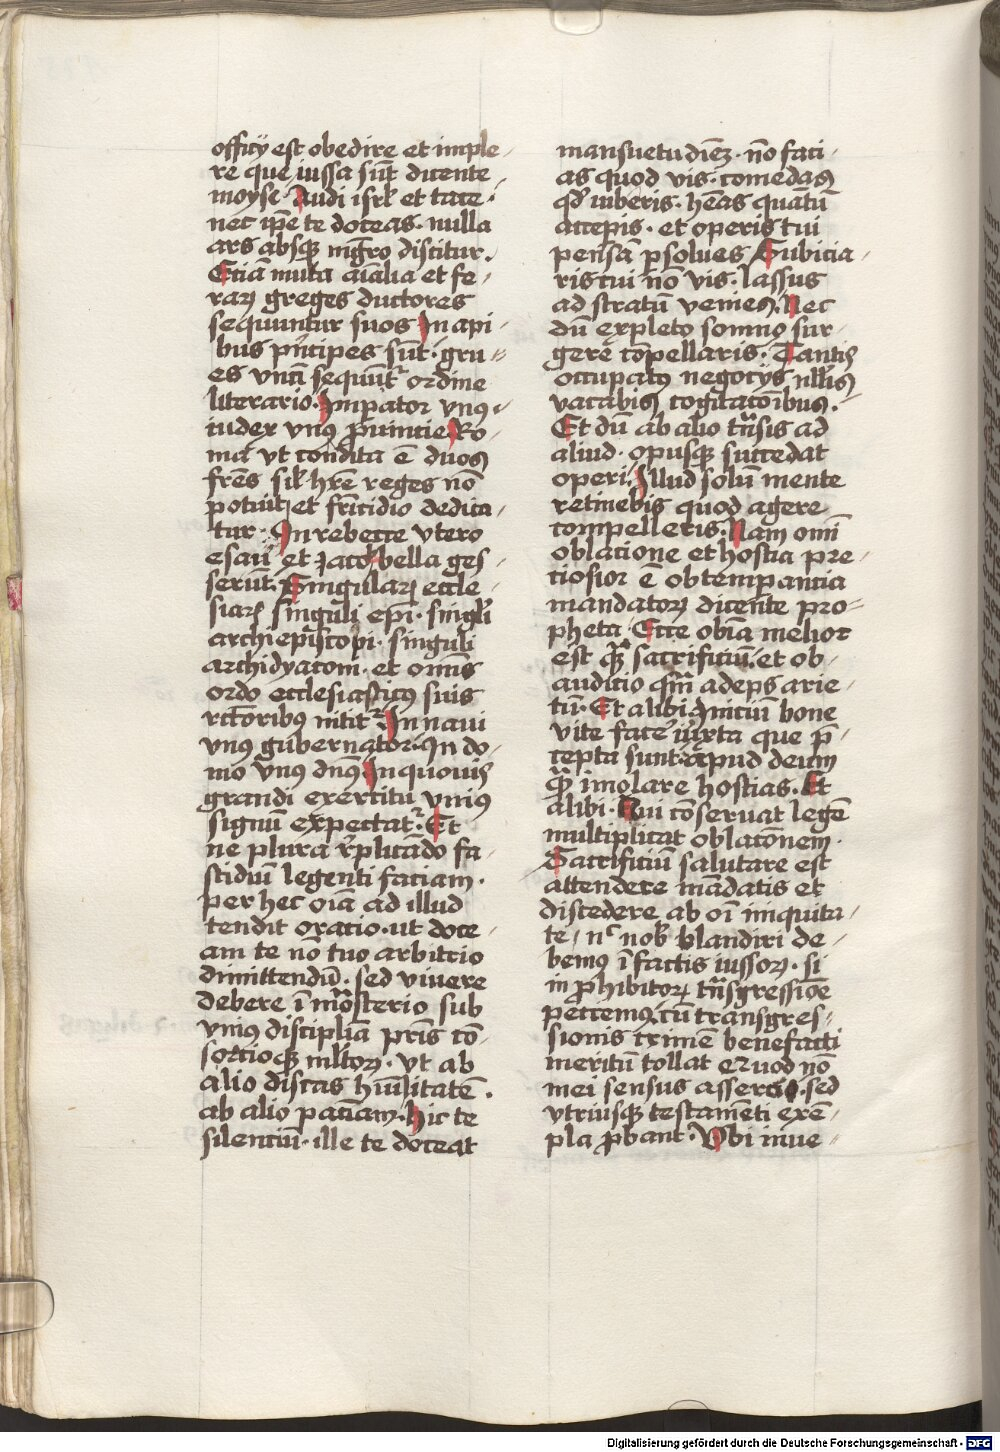 officÿ est obedire et imple-
re que iussa sūt dicente
moyse Audi isrl et tace
nec ip̄e te doceas. nulla
ars absqꝫ mgr̄o discitur.
Etiā muta aīalia et fe-
rarꝝ greges ductores
sequuntur suos In api-
bus prīcipes sūt. gru-
es vnā sequūtr ordine
literario. Imp̄ator vnꝰ
iudex vnꝰ ꝓuintie Ro-
ma vt condita ē duos
frēs sil hr̄e reges nō
potuit et frīcidio dedica-
tur. In rebecce vtero
esau et Jacob bella ges-
serūt. Singularꝝ eccle-
siarꝝ singuli ep̄i. singli
archiep̄iscopi. singuli
archidyaconi. et om̄is
ordo ecclesiasticꝰ suis
rc̄toribꝰ nititr In naui
vnꝰ gubernator. In do-
mo vnꝰ dn̄s. In quouis
grandi exercitu vniꝰ
signū expectatr. Et
ne plura r̄plicādo fa-
stidiū legenti faciam.
per hec oīa ad illud
tendit oratio. ut doce-
am te nō tuo arbitrio
dimittendū. sed viuere
debere ī mōsterio sub
vniꝰ disciplīa pr̄is cō-
sortioqꝫ ml̄torꝝ. vt ab
alio discas hūilitatē.
ab alio paciam. hic te
silentiū. ille te doceat
mansuetudiēꝫ. nō faci-
as quod vis. comedas
qd iuberis. heas quātū
accepis. et operis tui
pensā ꝑsolues Subicia-
ris cui nō vis. lassus
ad stratū venies. Nec
dū expleto somno sur-
gere cōpellaris. Tantis
occupatꝰ negocÿs nllis
vacabis cogitacōibus.
Et dū ab alio trn̄sis ad
aliud. opusqꝫ succedat
operi. Illud solū mente
retinebis quod agere
compelleris. Nam om̄i
oblacione et hostia pre-
tiosior ē obtemꝑantia
mandatorꝝ dicente pro-
pheta Ecce obīa melior
est qꝫ sacrificiū. et ob-
auditio qm̄ adeps arie-
tū. Et alibi. Iniciū bone
vite facē iuxta que p̄-
cepta sunt. apud deum
qꝫ imolare hostias. Et
alibi. Qui cōseruat legē
multiplicat oblacōnem.
Sacrificiū salutare est
attendere mādatis et
discedere ab oī iniquita-
te, nc nob blandiri de-
bemꝰ ī factis iussorꝝ. si
in ꝓhibitorꝝ trn̄sgressiōe
peccemꝰ. cū transgres-
sionis crimē benefacti
meritū tollat Quod nō
mei sensus assercio. sed
vtriusqꝫ testamēti exē-
pla ꝓbant. Vbi inue-
Digitalisierung gefördert durch die Deutsche Forschungsgemeinschaft - DFG